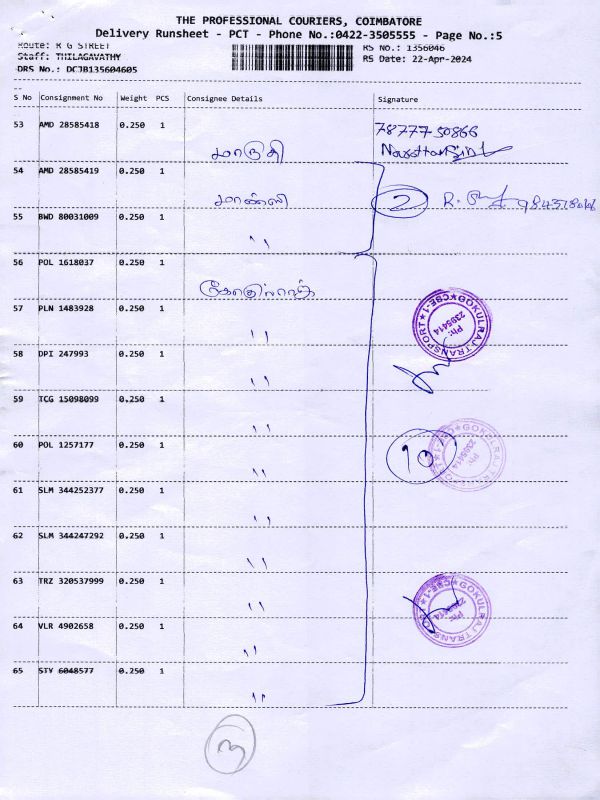 THE PROFESSIONAL COURIERS, COIMBATORE
Delivery Runsheet - PCT - Phone No.:0422-3505555 - Page No.:5
Route: R G STREET RS No.: 1356046
Staff: THILAGAVATHY RS Date: 22-Apr-2024
DRS No.: DCJB135604605
S No Consignment No Weight PCS Consignee Details Signature
53 AMD 28585418 0.250 1 78777 50866
மாருதி
54 AMD 28585419 0.250 1
மான்ஸி 2 R.
55 BWD 80031009 0.250 1
"
56 POL 1618037 0.250 1
கோகுல்ராஜ்
57 PLN 1483928 0.250 1 GOKULRAJ TRANSPORT CBE-1 Ph: 2395414
"
58 DPI 247993 0.250 1
"
59 TCG 15098099 0.250 1
"
60 POL 1257177 0.250 1 10 GOKULRAJ TRANSPORT CBE-1 Ph: 2395414
"
61 SLM 344252377 0.250 1
"
62 SLM 344247292 0.250 1
"
63 TRZ 320537999 0.250 1 GOKULRAJ TRANSPORT CBE-1 Ph: 2395414
"
64 VLR 4902658 0.250 1
"
65 STY 6048577 0.250 1
"
3